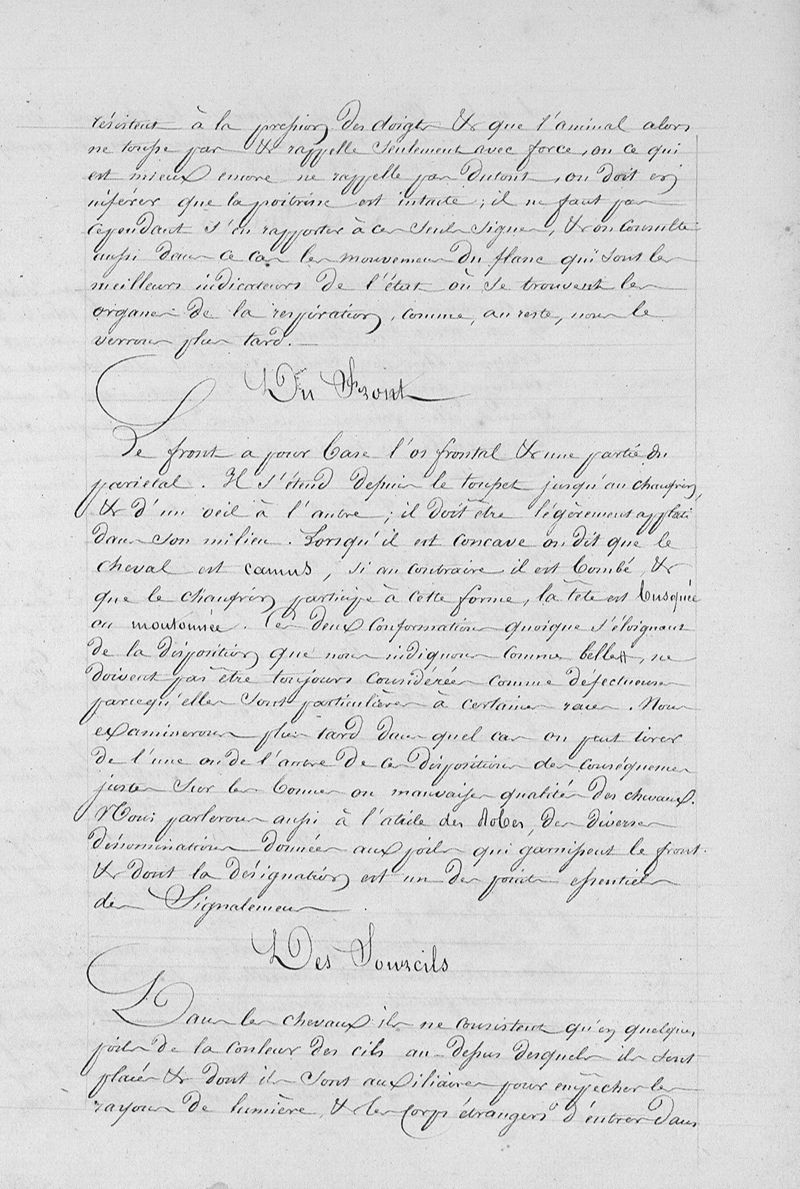 résistent à la pression des doigts & que l'aminal alors
ne tousse pas & rappelle seulement avec force, ou ce qui
est mieux encore ne rappelle pas du tout, on doit en
inférer que la poitrine est intacte; il ne faut pas
cependant s'en rapporter à ces seuls signes, & on consulte
aussi dans ce cas les mouvemens du flanc qui sont les
meilleurs indicateurs de l'état où se trouvent les
organes de la respiration, comme, au reste, nous le
verrons plus tard.
Du Front
Le front a pour base l'os frontal & une partie du
parietal. Il s'étend depuis le toupet jusqu'au chanfrein,
& d'un oeil à l'autre; il doit être légèrement applati
dans son milieu. Lorsqu'il est concave on dit que le
cheval est camus, si au contraire il est bombé, &
que le chanfrein participe à cette forme, la tête est busquée
ou moutonnée. Ces deux conformations quoique s'éloignant
de la disposition que nous indiquons comme belle, ne
doivent pas être toujours considérées comme défectueuses
parcequ'elles sont particulières à certaines races. Nous
examinerons plus tard dans quel cas on peut tirer
de l'une ou de l'autre de ces dispositions des conséquences
justes sur les bonnes ou mauvaises qualités des chevaux.
Nous parlerons aussi à l'aticle des Robes, des diverses
dénominations données aux poils qui garnissent le front
& dont la désignation est un des points essentiels
des Signalemens.
Des Sourcils
Dans les chevaux ils ne consistent qu'en quelques
poils de la couleur des cils au-dessus desquels ils sont
placés & dont ils sont auxiliaires pour empêcher les
rayons de lumière, & les corps étrangers d'entrer dans